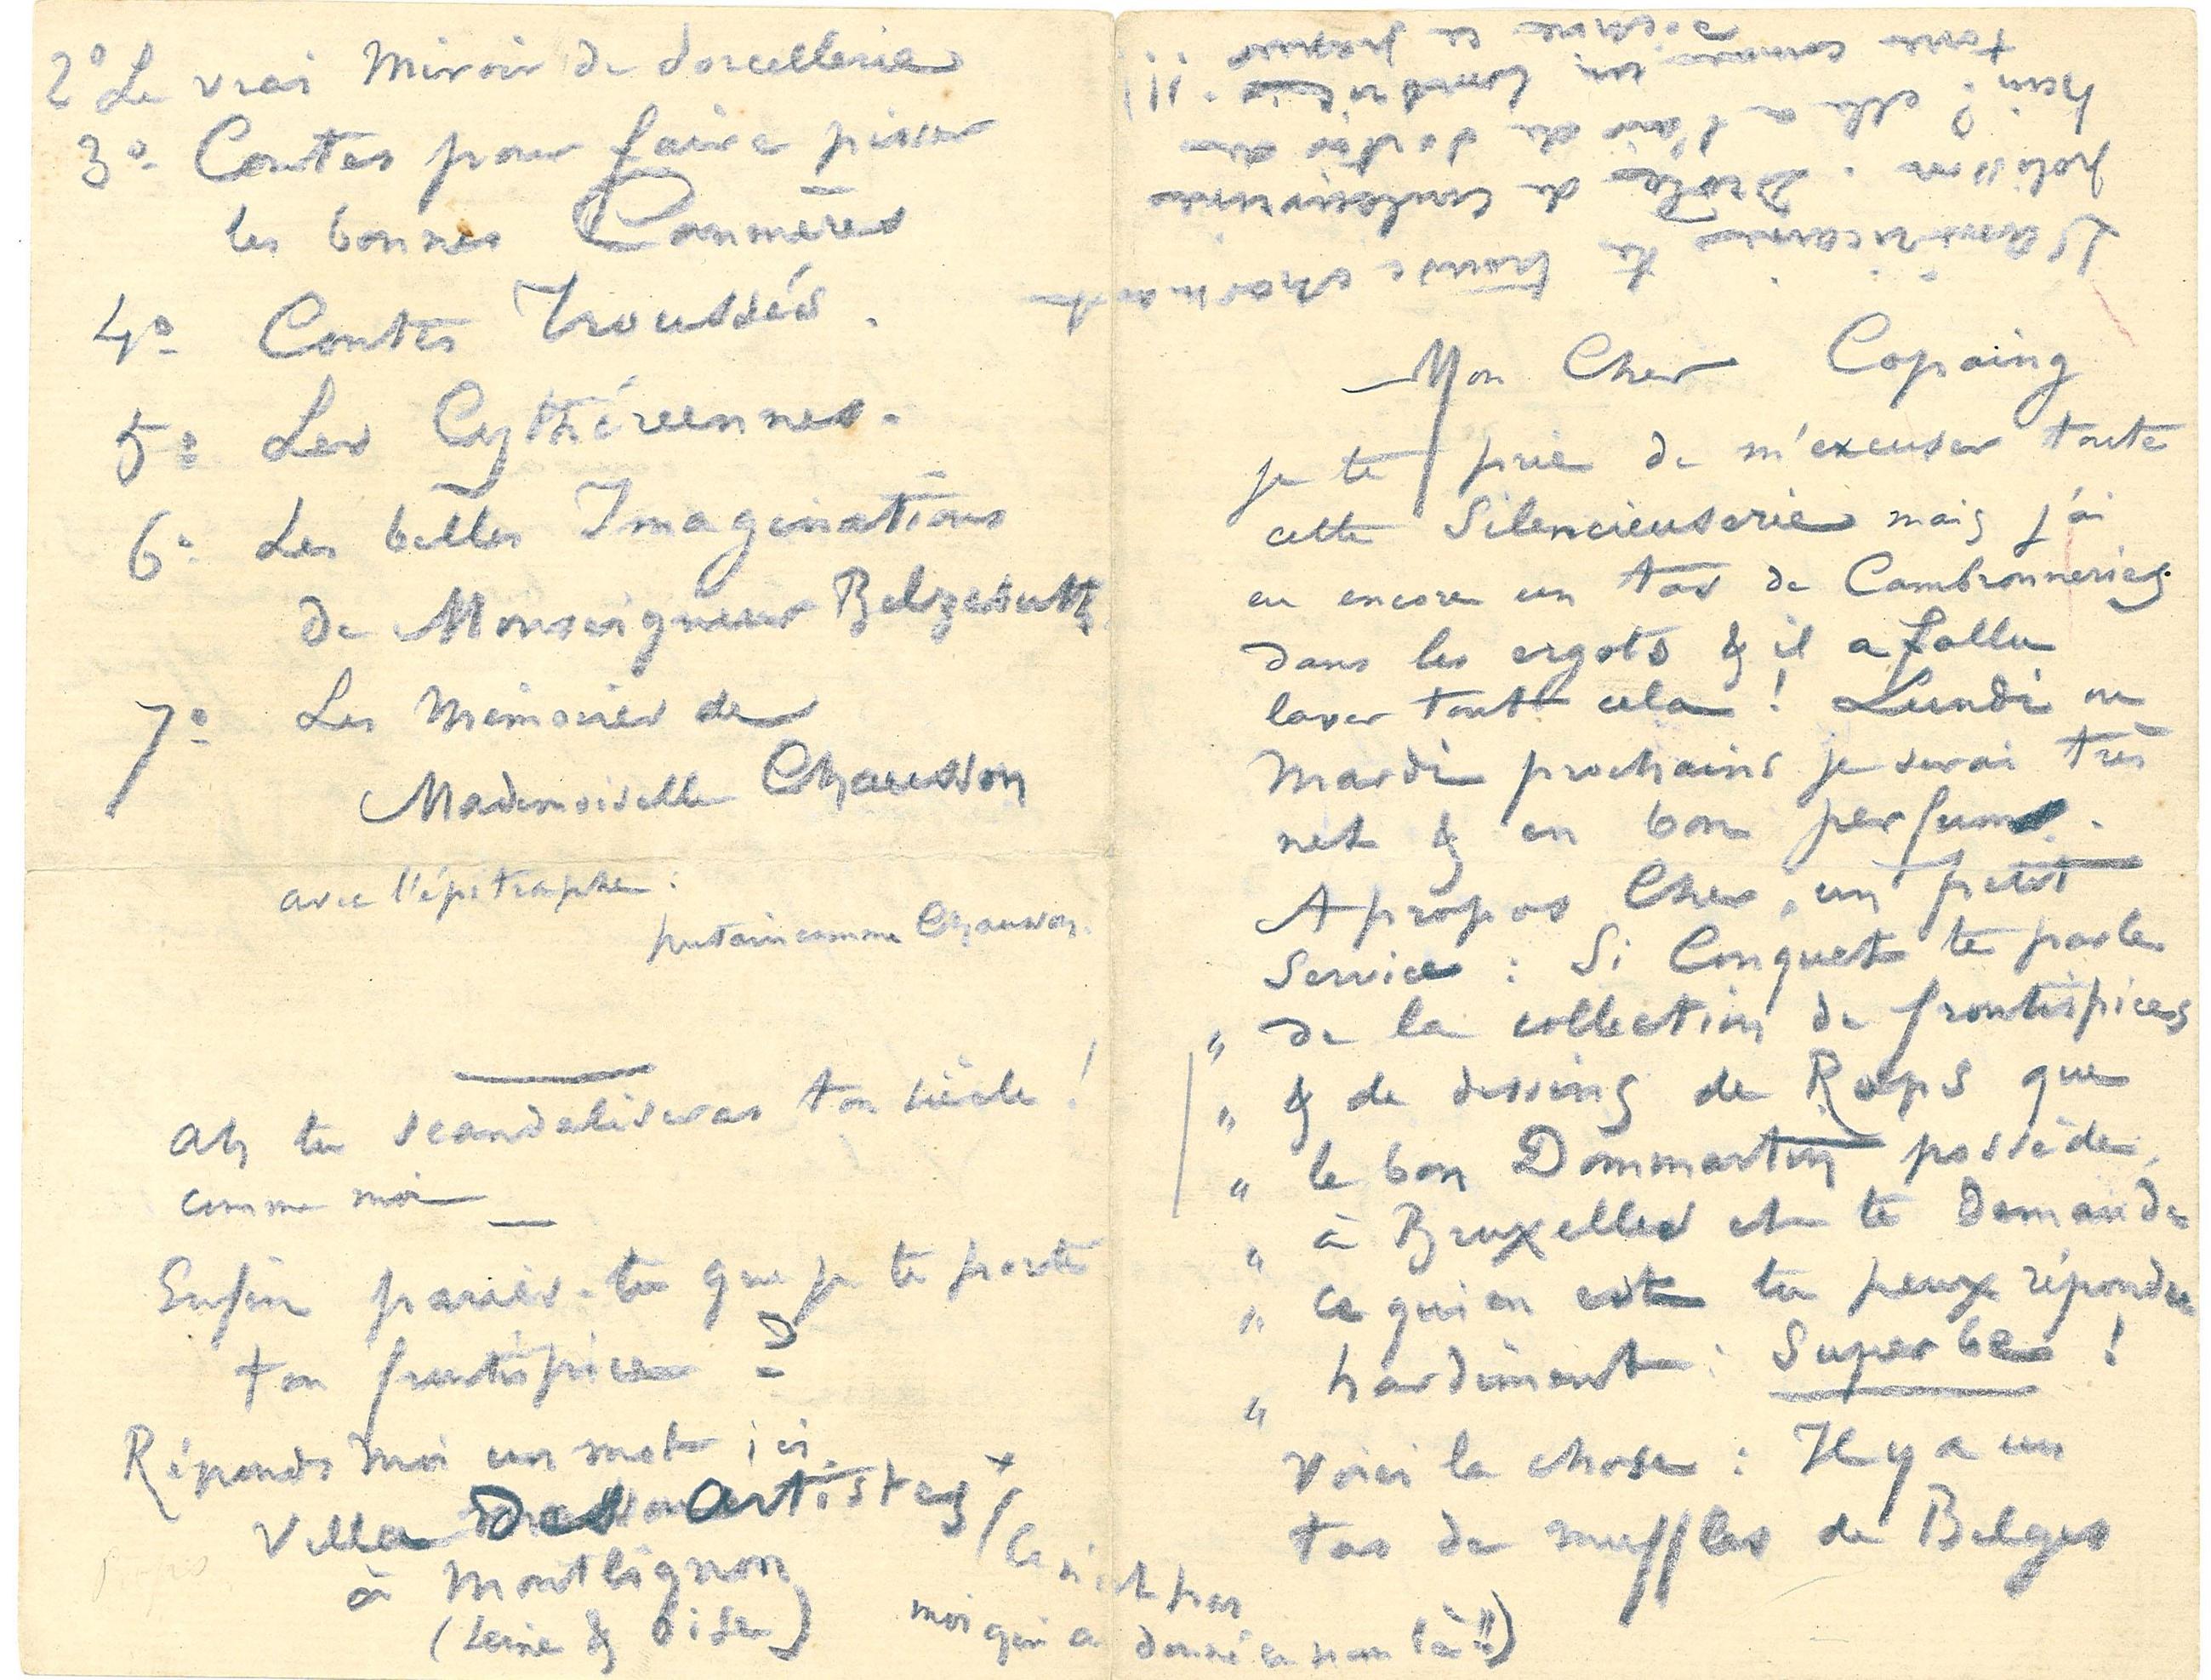 2° Le vrai Miroir de Sorcellerie
3° Contes pour faire pisser
les bonnes Commères
4° Contes Troussés.
5° Les Cythéreennes.
6° Les belles Imaginations
de Monseigneur Belzebuth
7° Les Mémoires de
Mademoiselle Chausson
avec l'épitraphe :
putain comme Chausson.
Ah tu scandaliseras ton siècle !
comme moi —
Enfin paries-tu que je te porte
ton frontispice ?
Réponds moi un mot ici
Villa Des Artistes + (Ce n'est pas
à Montlignon moi qui ai donné ce nom là !!)
(Seine & Oise)
L'américaine te trouve charmant
polisson. Drôle de
hein ? elle a l'air de sortir
comme un !!!
Mon Cher Copaing
je te prie de m'excuser toute
cette Silencieuserie mais j'ai
eu encore un tas de Cambronneries
dans les ergots & il a fallu
laver tout cela ! Lundi ou
Mardi prochains je serai très
net & en bon perfum.
A propos Cher, un petit
Service : Si Conquet te parle
" de la collection de frontispices
" & de dessins de Rops que
" le bon Dommartin possède,
" à Bruxelles et te demande
" ce qui en est tu peux répondre
" hardiment : Superbe !
Voici la chose : Il y a un
tas de muffles de Belges